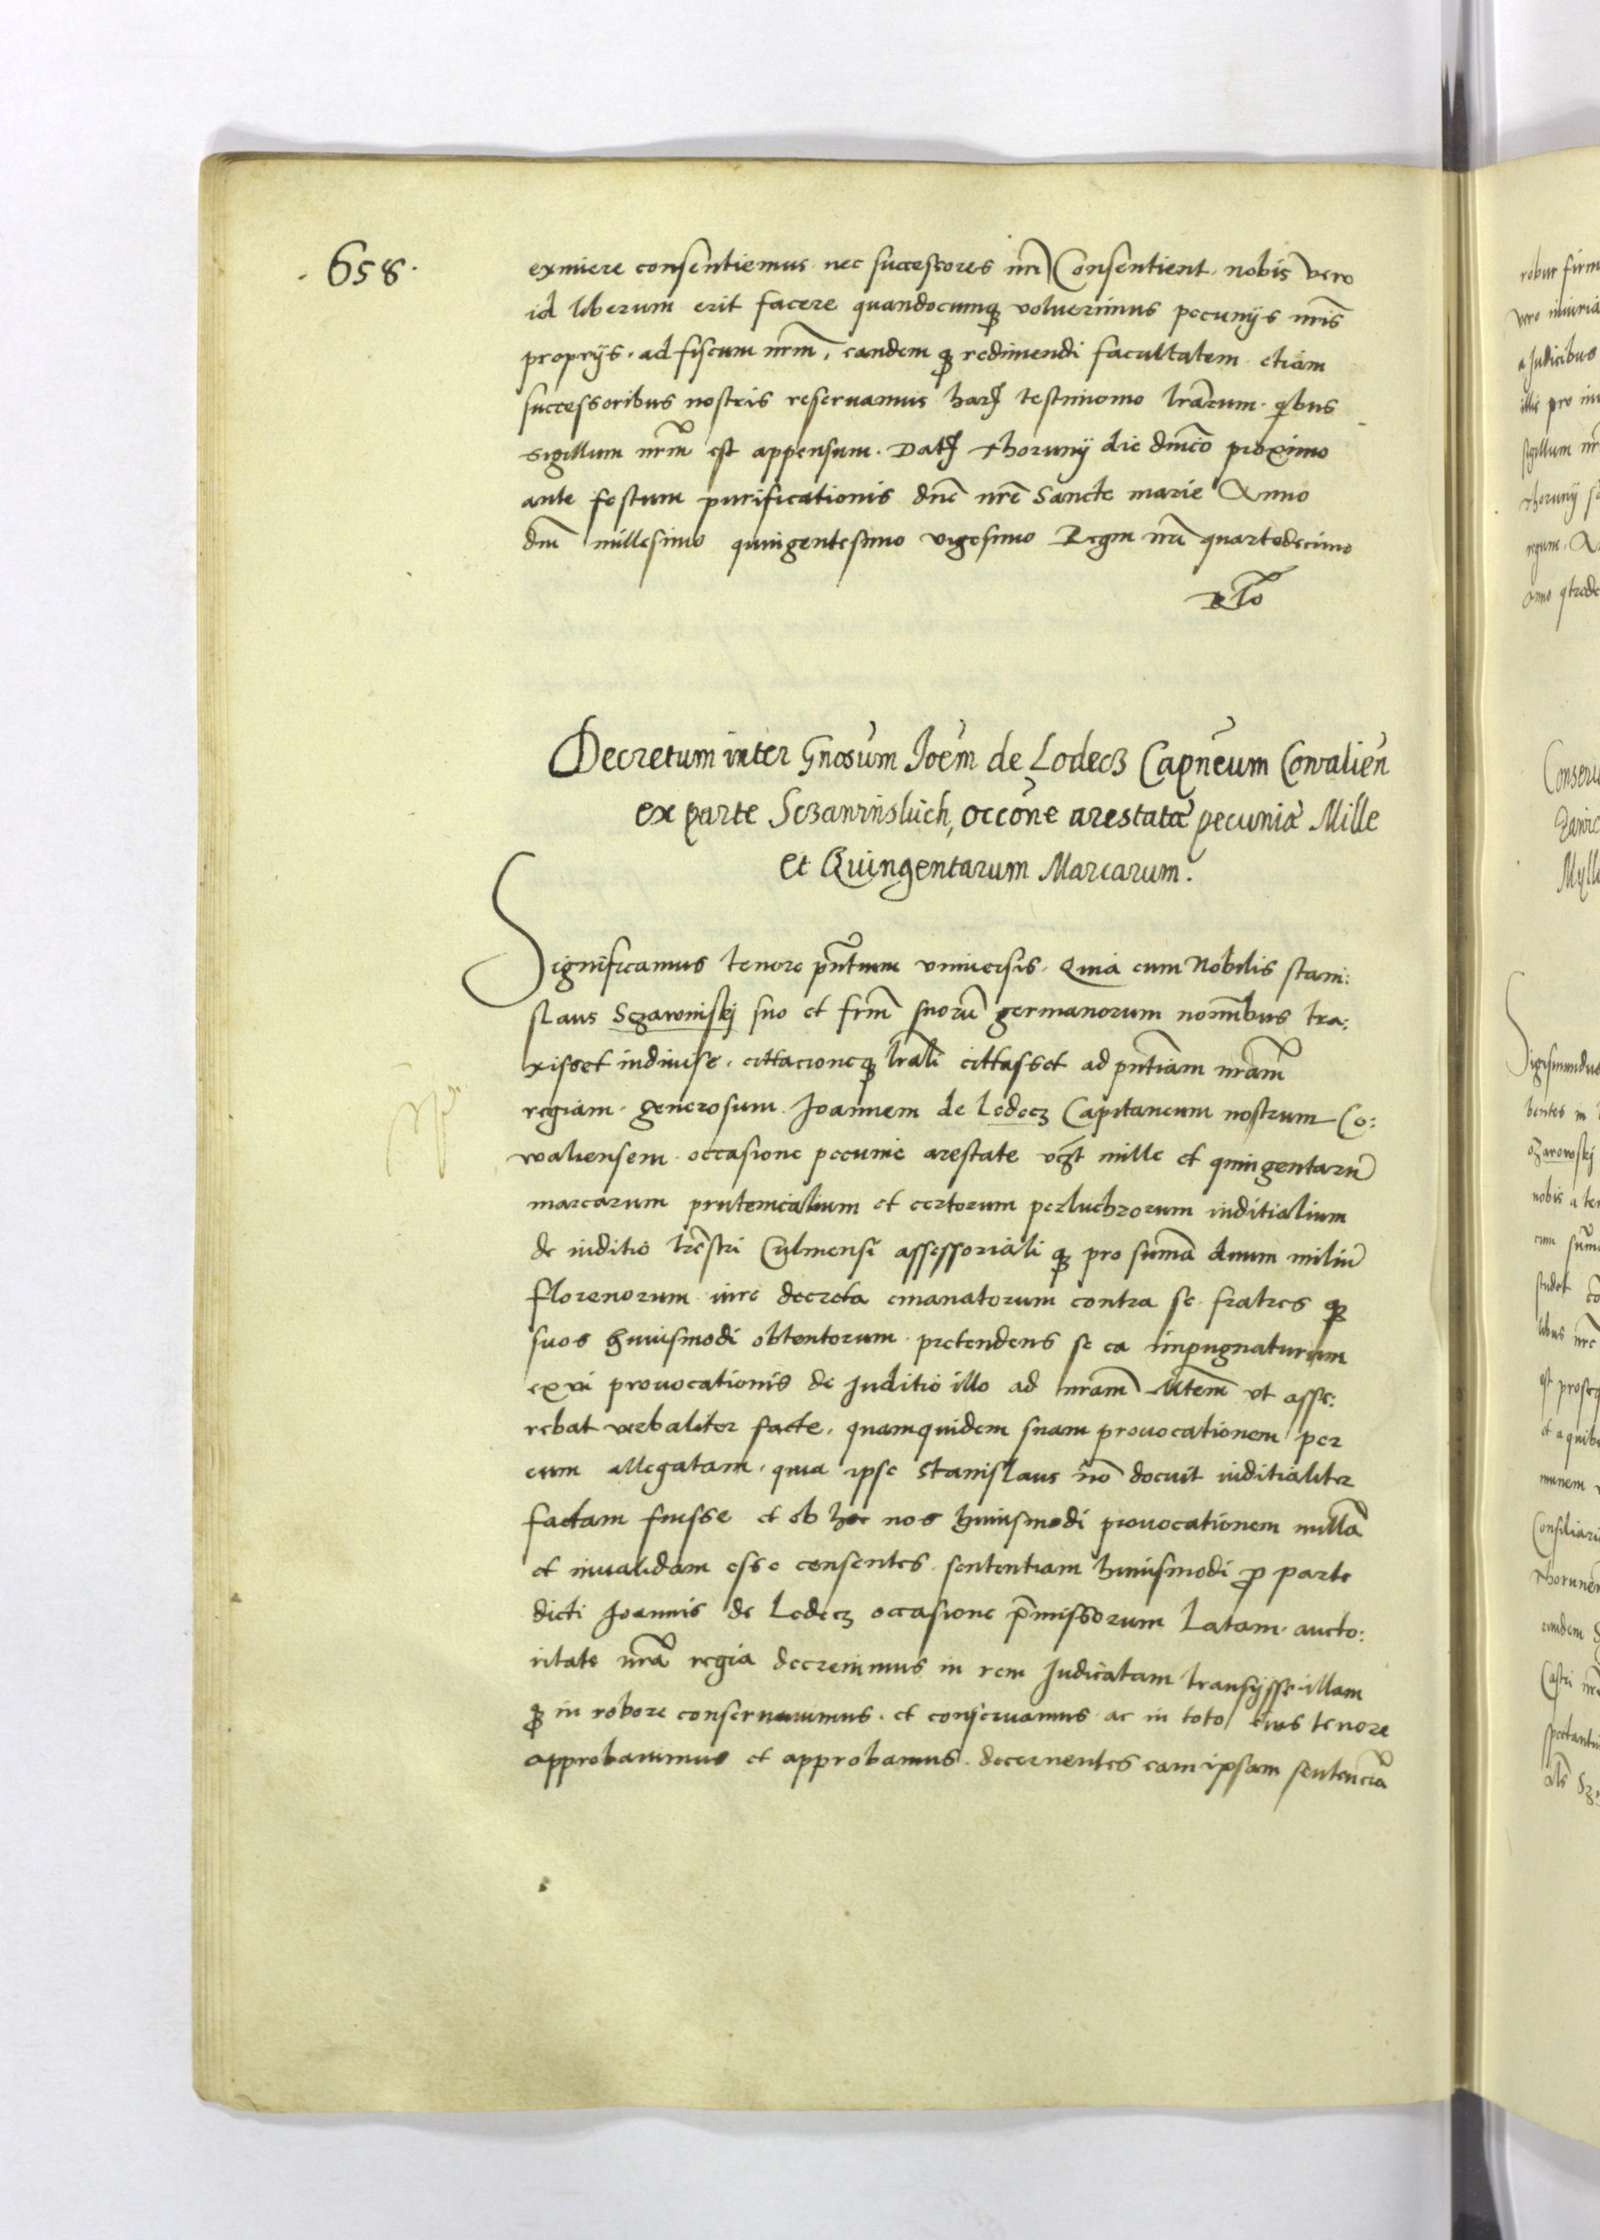 . 658 .
eximere consentiemus nec successores nr̃i Consentient. nobis vero
id liberum erit facere quandocumq3 voluerimus pecunijs nr̃is
proprijs. ad fiscum nr̃m, eandem q3 redimendi facultatem etiam
successoribus nostris reseruamus har testimonio lr̃arum. qbus
sigillum nr̃m est appensum. Dat Thorunij die dnico proximo
ante festum purificationis dne nr̃e Sancte marie Anno
dni millesimo quingentesimo vigesimo Regni nri quartodecimo
Rlo
Decretum inter Gnosum Joem de Lodecz Capneum Covalien
ex parte Sczawinskich, occone arestatæ pecuniæ Mille
et Quingentarum Marcarum.
Significamus tenore pñtium vniuersis. Quia cum Nobilis stani:
slaus Sczawinskj suo et frm̃ suorũ germanorum nominibus tra:
xisset indiuise. cittacioneq3 lrali cittasset ad pñtiam nr̃am
regiam. generosum Joannem de Lodecz Capitaneum nostrum Co:
waliensem occasione pecunie arestate vczt mille et quingentarũ
marcarum prutenicalium et certorum perluchrorum inditialium
de inditio trestri Culmensi assessoriali q3 pro suma duum miliũ
florenorum iure decreta emanatorum contra se fratres q3
suos huiusmodi obtentorum. pretendens se ea impugnaturum
ex vi prouocationis de Juditio illo ad nr̃am Mtem vt asse:
rebat verbaliter facte. quamquidem suam prouocationem per
eum allegatam. quia ipse Stanislaus nõ docuit inditialiter
factam fuisse et ob hoc nos huiusmodi prouocationem nullã
et inualidam esse censentes. sententiam huiusmodi p parte
dicti Joannis de Lodecz occasione pmissorum Latam. aucto:
ritate nrã regia decreuimus in rem Judicatam transijsse. illam
q3 in robore conseruauimus. et conseruamus ac in toto eius tenore
approbauimus et approbamus. decernentes eam ipsam sentenciã